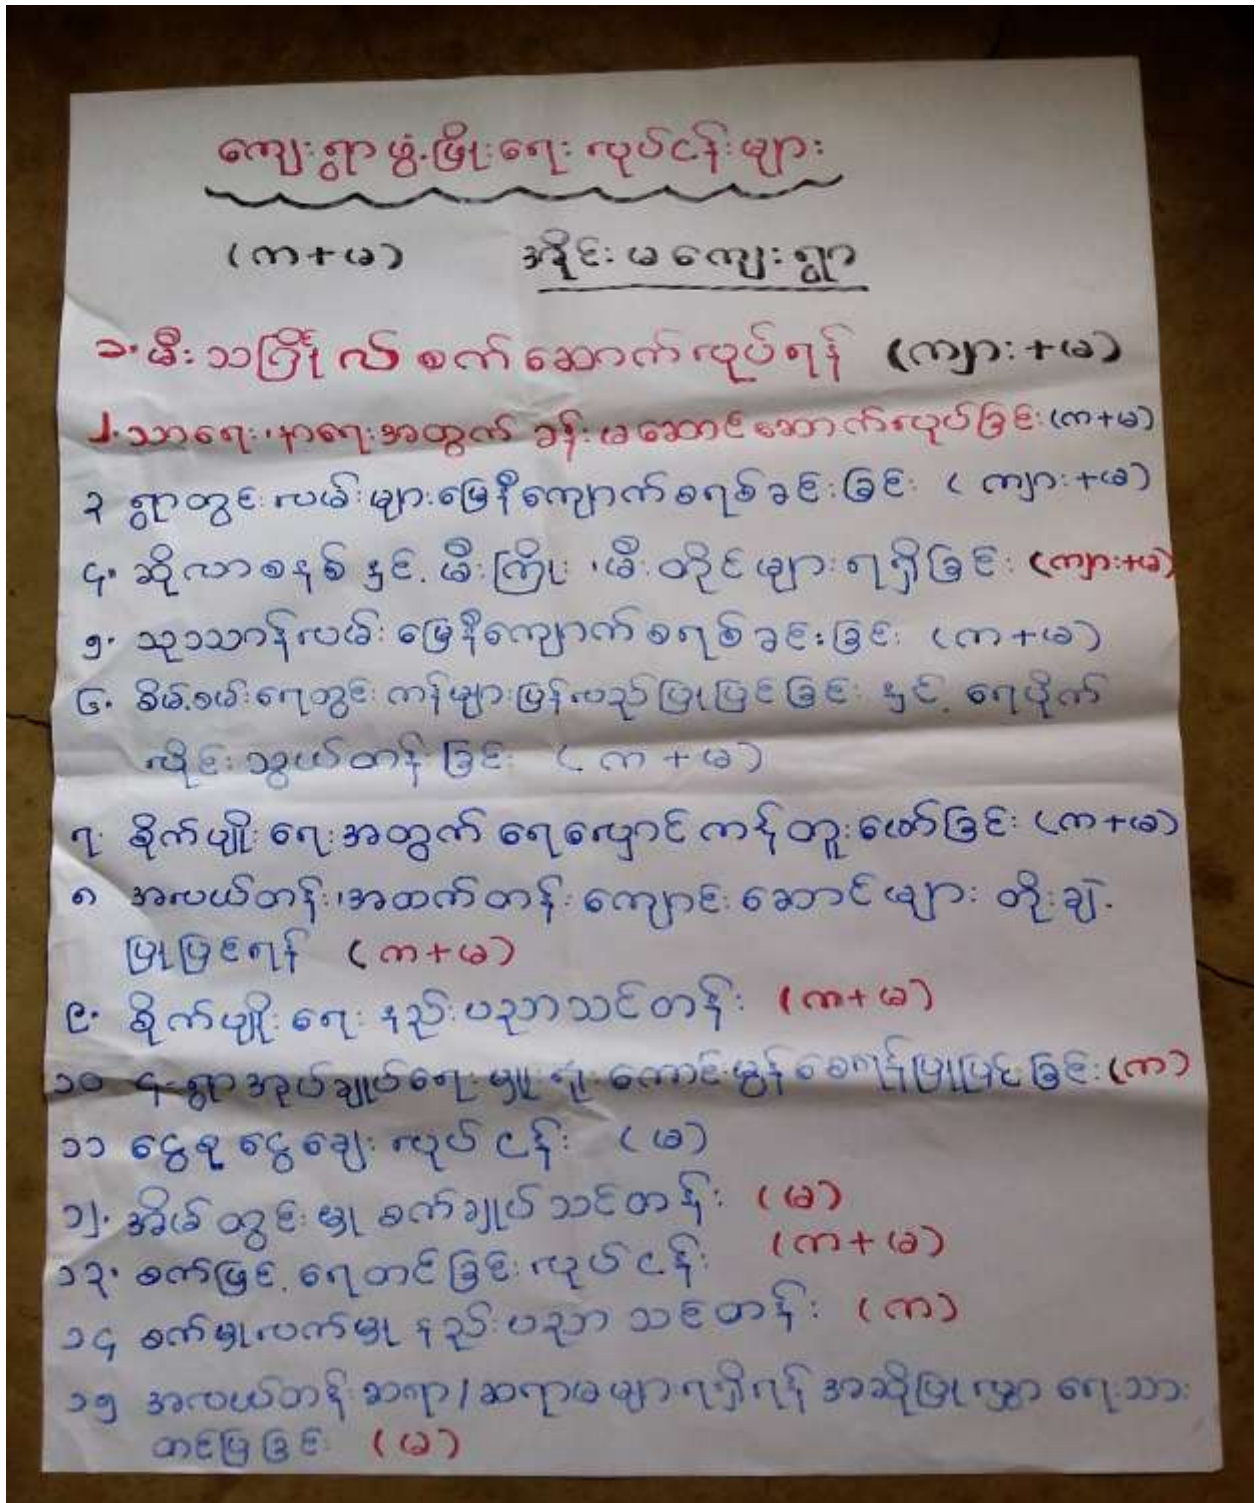 ကျေးရွာဖွံ့ဖြိုးရေး လုပ်ငန်းများ
(က+မ) အိုင်းမကျေးရွာ
၁. မီးသဂြိုလ်စက် ဆောက်လုပ်ရန် (ကျား+မ)
၂. သာရေး၊နာရေးအတွက် ခန်းမဆောင်ဆောက်လုပ်ခြင်း (က+မ)
၃ ရွာတွင်းလမ်းများမြေနီကျောက်စရစ်ခင်းခြင်း (ကျား+မ)
၄. ဆိုလာစနစ်နှင့် မီးကြိုး ၊မီးတိုင်များရရှိခြင်း (ကျား+မ)
၅. သုဿာန်လမ်း မြေနီကျောက်စရစ်ခင်းခြင်း (က+မ)
၆. စိမ့်စမ်းရေတွင်းကန်များပြန်လည်ပြုပြင်ခြင်း နှင့် ရေပိုက်
လိုင်းသွယ်တန်ခြင်း (က+မ)
၇. စိုက်ပျိုးရေးအတွက် ရေလှောင်ကန်တူးဖော်ခြင်း (က+မ)
၈ အလယ်တန်း၊အထက်တန်းကျောင်းဆောင်များ တိုးချဲ့
ပြုပြင်ရန် (က+မ)
၉. စိုက်ပျိုးရေး နည်းပညာသင်တန်း (က+မ)
၁၀ ရွာအုပ်ချုပ်ရေးမှူးရုံးကောင်းမွန်စေရန်ပြုပြင်ခြင်း (က)
၁၁ ငွေစုငွေချေးလုပ်ငန်း (မ)
၁၂. အိမ်တွင်းမှုစက်ချုပ်သင်တန်း (မ)
၁၃. စက်ဖြင့်ရေတင်ခြင်းလုပ်ငန်း (က+မ)
၁၄ စက်မှုလက်မှုနည်းပညာ သင်တန်း (က)
၁၅ အလယ်တန်းဆရာ/ဆရာမများရရှိရန် အဆိုပြုလွှာ ရေးသား
တင်ပြခြင်း (မ)